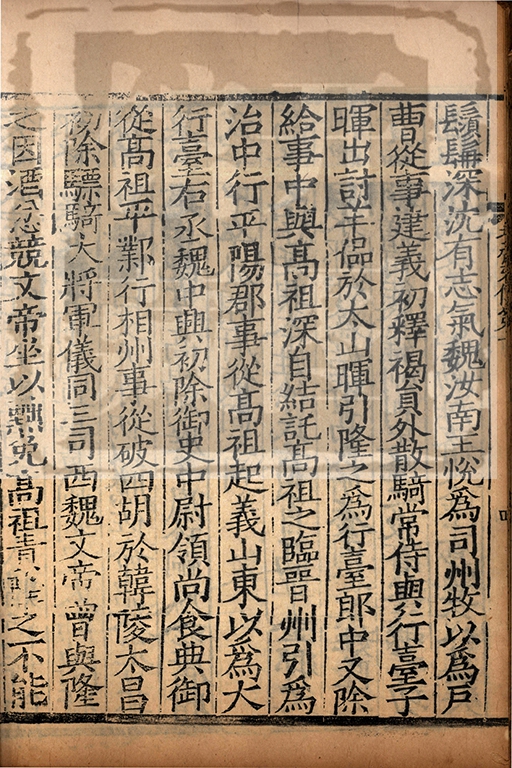 鬚鬢深沈有志氣魏汝南王悅為司州牧以為戶
曹從事建義初釋褐員外散騎常侍與行臺于
暉出討羊侃於太山暉引隆之為行臺郎中又除
給事中與高祖深自結託高祖之臨晉州引為
治中行平陽郡事從高祖起義山東以為大
行臺右丞魏中興初除御史中尉領尚食典御
從高祖平鄴行相州事從破四胡於韓陵太昌
初除驃騎大將軍儀同三司西魏文帝曾與隆
之因酒忿競文帝坐以黜免高祖責之不能